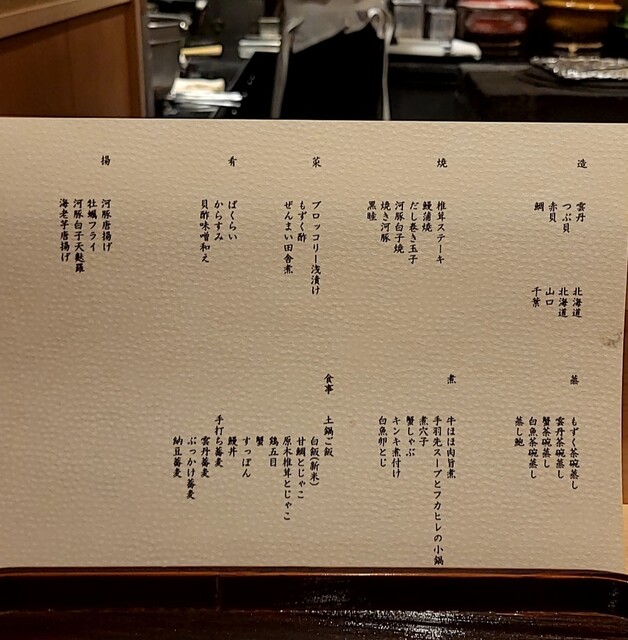 造
雲丹 北海道
つぶ貝 北海道
赤貝 山口
鯛 千葉
焼
椎茸ステーキ
鰻蒲焼
だし巻き玉子
河豚白子焼
焼き河豚
黒睦
菜
ブロッコリー浅漬け
もずく酢
ぜんまい田舎煮
肴
ばくらい
からすみ
貝酢味噌和え
揚
河豚唐揚げ
牡蠣フライ
河豚白子天麩羅
海老芋唐揚げ
蒸
もずく茶碗蒸し
雲丹茶碗蒸し
蟹茶碗蒸し
白魚茶碗蒸し
蒸し鮑
煮
牛ほほ肉旨煮
手羽先スープとフカヒレの小鍋
煮穴子
蟹しゃぶ
キンキ煮付け
白魚卵とじ
食事
土鍋ご飯
白飯(新米)
甘鯛とじゃこ
原木椎茸とじゃこ
鶏五目
蟹
すっぽん
鰻丼
手打ち蕎麦
雲丹蕎麦
ぶっかけ蕎麦
納豆蕎麦